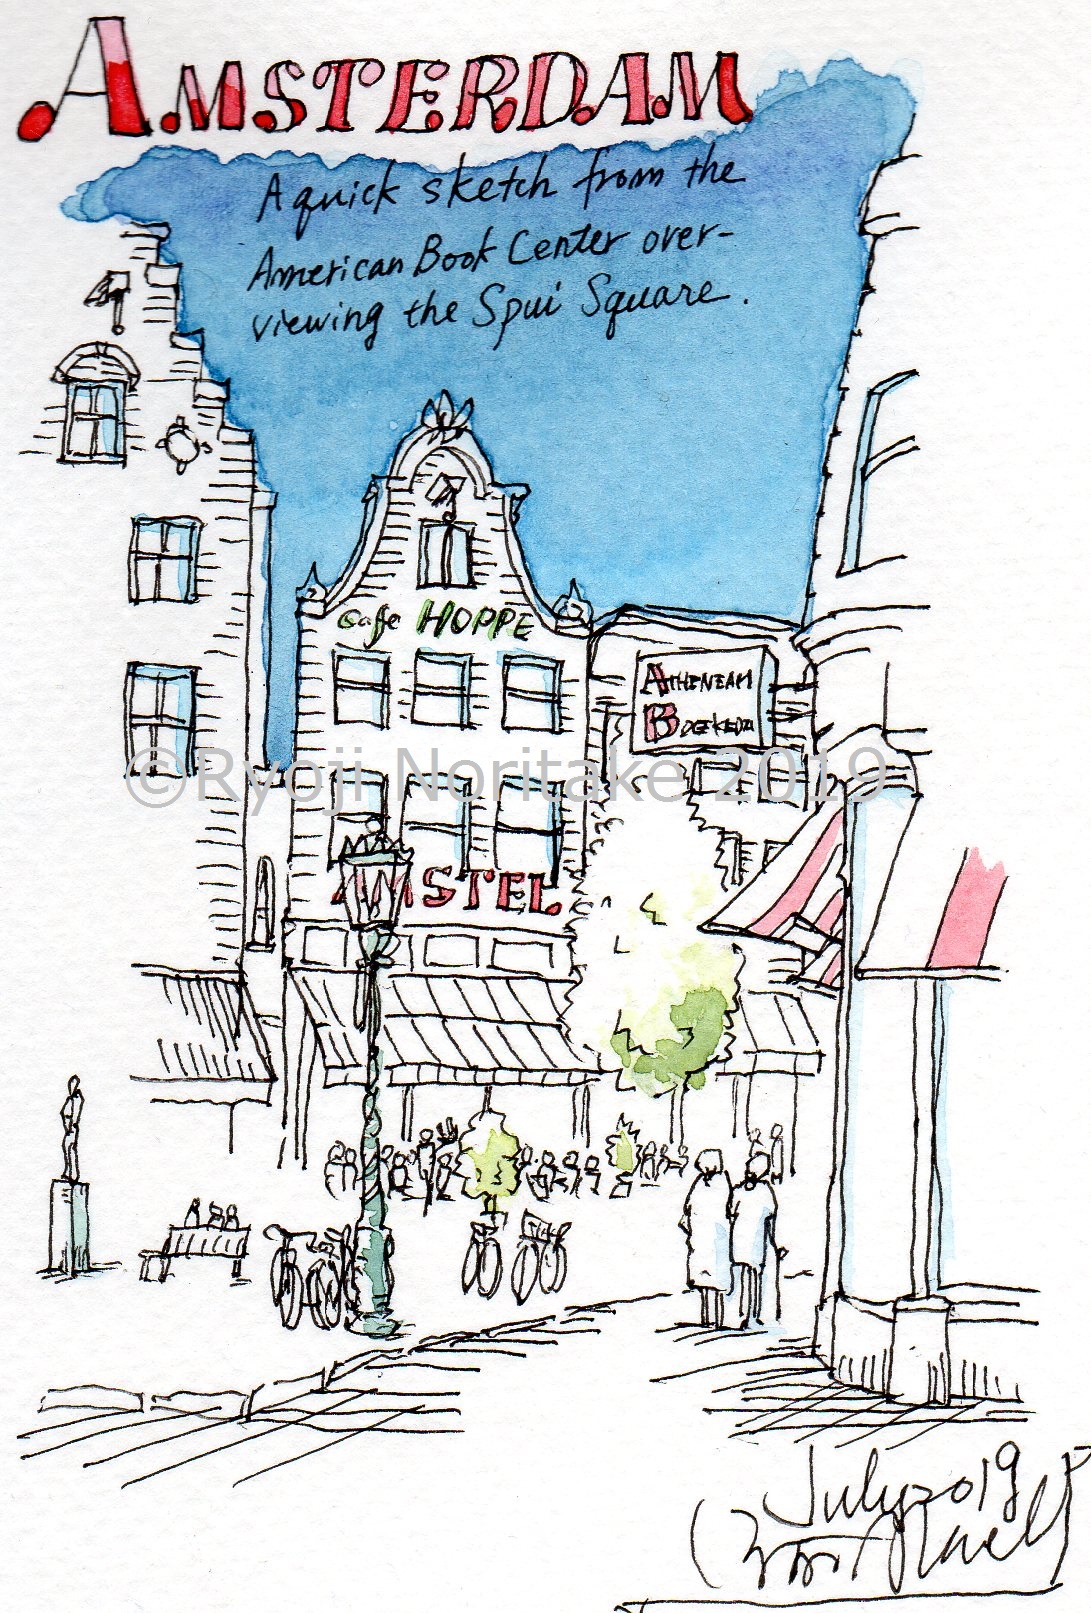 AMSTERDAM
A quick sketch from the
American Book Center over-
viewing the Spui Square.
Cafe HOPPE
ATHENEAM
BOEKEDA
©Ryoji Noritake 2019
AMSTEL
July 2019